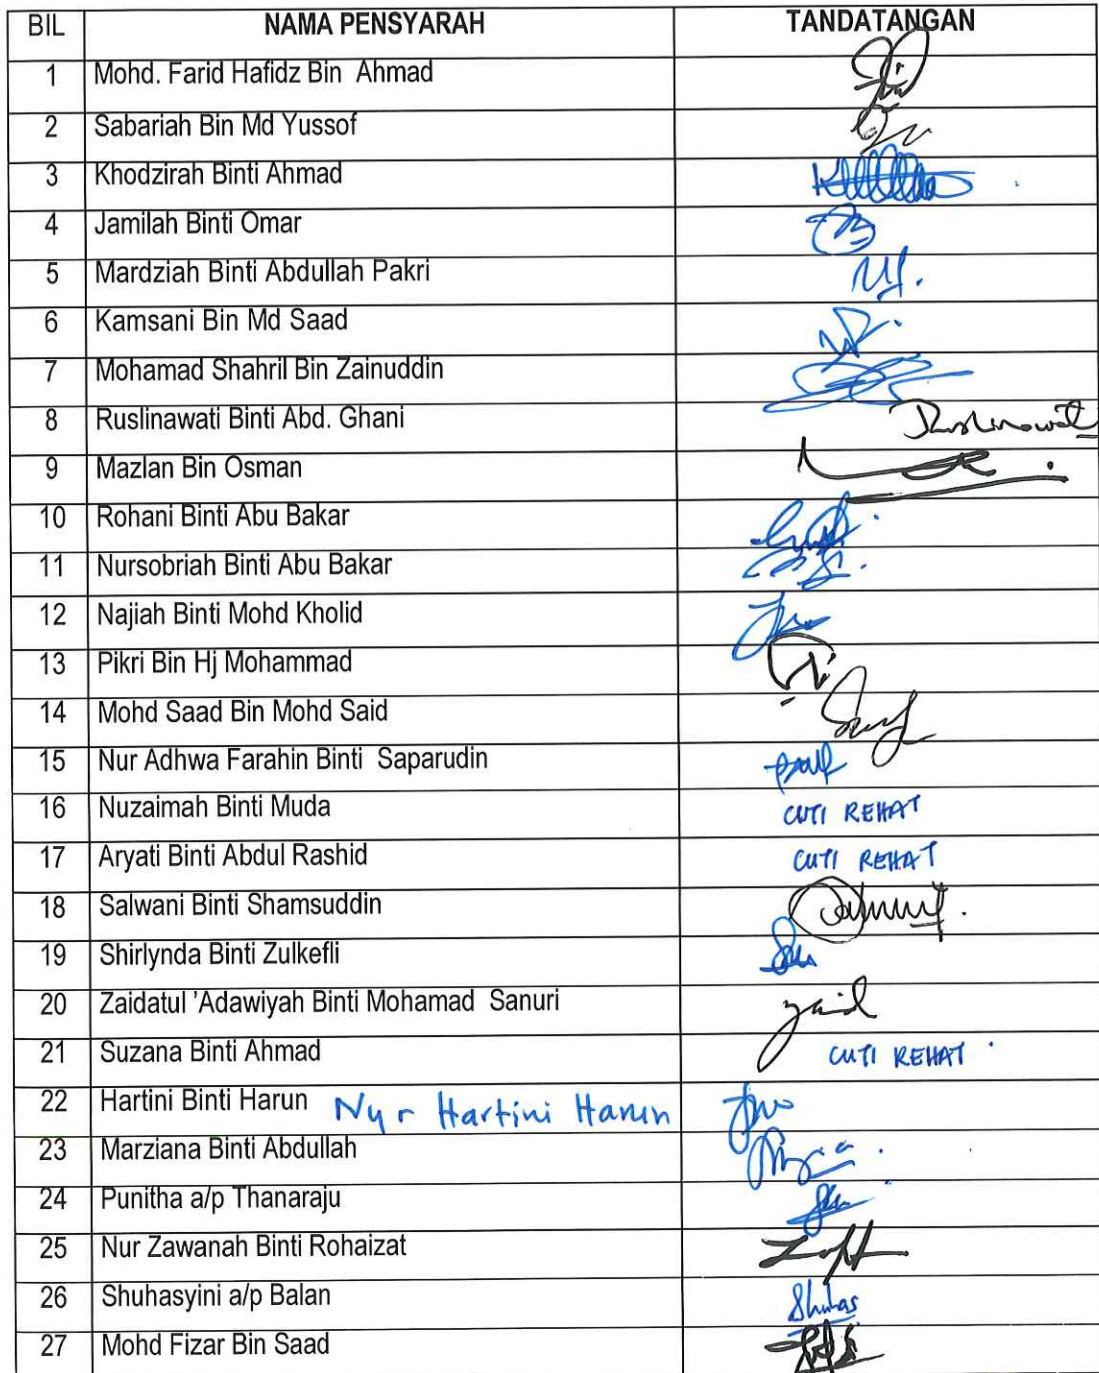 BIL NAMA PENSYARAH TANDATANGAN
1 Mohd. Farid Hafidz Bin Ahmad
2 Sabariah Bin Md Yussof
3 Khodzirah Binti Ahmad
4 Jamilah Binti Omar
5 Mardziah Binti Abdullah Pakri
6 Kamsani Bin Md Saad
7 Mohamad Shahril Bin Zainuddin
8 Ruslinawati Binti Abd. Ghani
9 Mazlan Bin Osman
10 Rohani Binti Abu Bakar
11 Nursobriah Binti Abu Bakar
12 Najiah Binti Mohd Kholid
13 Pikri Bin Hj Mohammad
14 Mohd Saad Bin Mohd Said
15 Nur Adhwa Farahin Binti Saparudin
16 Nuzaimah Binti Muda CUTI REHAT
17 Aryati Binti Abdul Rashid CUTI REHAT
18 Salwani Binti Shamsuddin
19 Shirlynda Binti Zulkefli
20 Zaidatul 'Adawiyah Binti Mohamad Sanuri zaid
21 Suzana Binti Ahmad CUTI REHAT
22 Hartini Binti Harun Nur Hartini Harun
23 Marziana Binti Abdullah
24 Punitha a/p Thanaraju
25 Nur Zawanah Binti Rohaizat
26 Shuhasyini a/p Balan Shuhas
27 Mohd Fizar Bin Saad